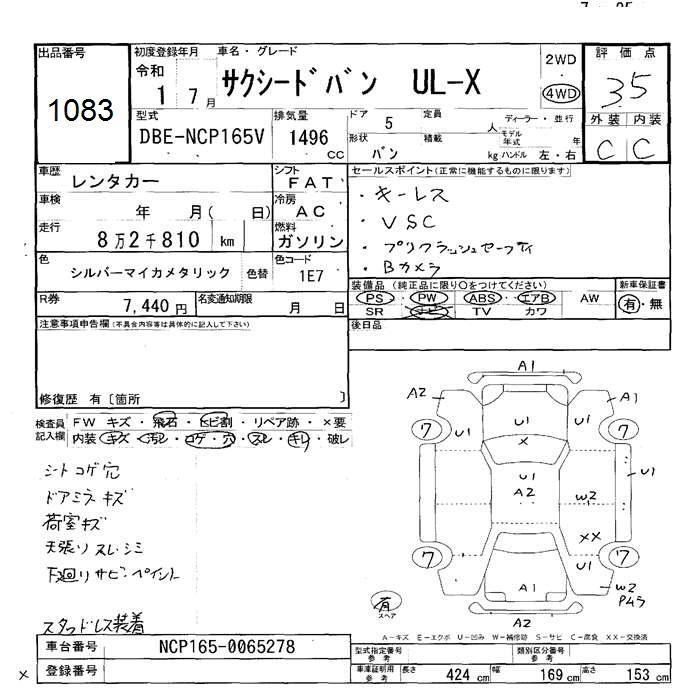 出品番号
1083
初度登録年月
令和
1 7 月
車名・グレード
サクシードバン UL-X
2WD
4WD
評価点
35
外装 内装
C C
型式
DBE-NCP165V
排気量
1496
CC
ドア 5 定員 人
ディーラー・並行
形状 バン 積載 kg
モデル年式 年
ハンドル 左・右
車歴 レンタカー
シフト FAT
車検 年 月( 日)
冷房 AC
走行 8万2千810 km
燃料 ガソリン
色 シルバーマイカメタリック 色替
色コード 1E7
R券 7,440 円
名変通知期限 月 日
セールスポイント(正常に機能するものに限ります)
・キーレス
・VSC
・プリクラッシュセーフティ
・Bカメラ
装備品(純正品に限り○をつけてください)
PS・PW・ABS・エアB・AW
SR ナビ TV カワ
新車保証書
有・無
後日品
注意事項申告欄(不具合内容等は具体的に記入して下さい)
修復歴 有〔箇所 〕
検査員記入欄
FW キズ・飛石・ヒビ割・リペア跡・×要
内装・キズ・汚レ・コゲ・穴・スレ・キレ・破レ
シートコゲ穴
ドアミラーキズ
荷室キズ
天張りスレ・シミ
下廻りサビ・ペイント
スタッドレス装着
A1
A2
A1
7
U1
U1
U1
7
×
U1
A2
U1
W2
XX
7
U1
7
A1
W2
P45
有
スペア
A2
A-キズ E-エクボ U-凹み W-補修跡 S-サビ C-腐食 XX-交換済
車台番号 NCP165-0065278
登録番号
×
型式指定番号
参考
類別区分番号
参考
車庫証明用
参考
長さ 424 cm 幅 169 cm 高さ 153 cm